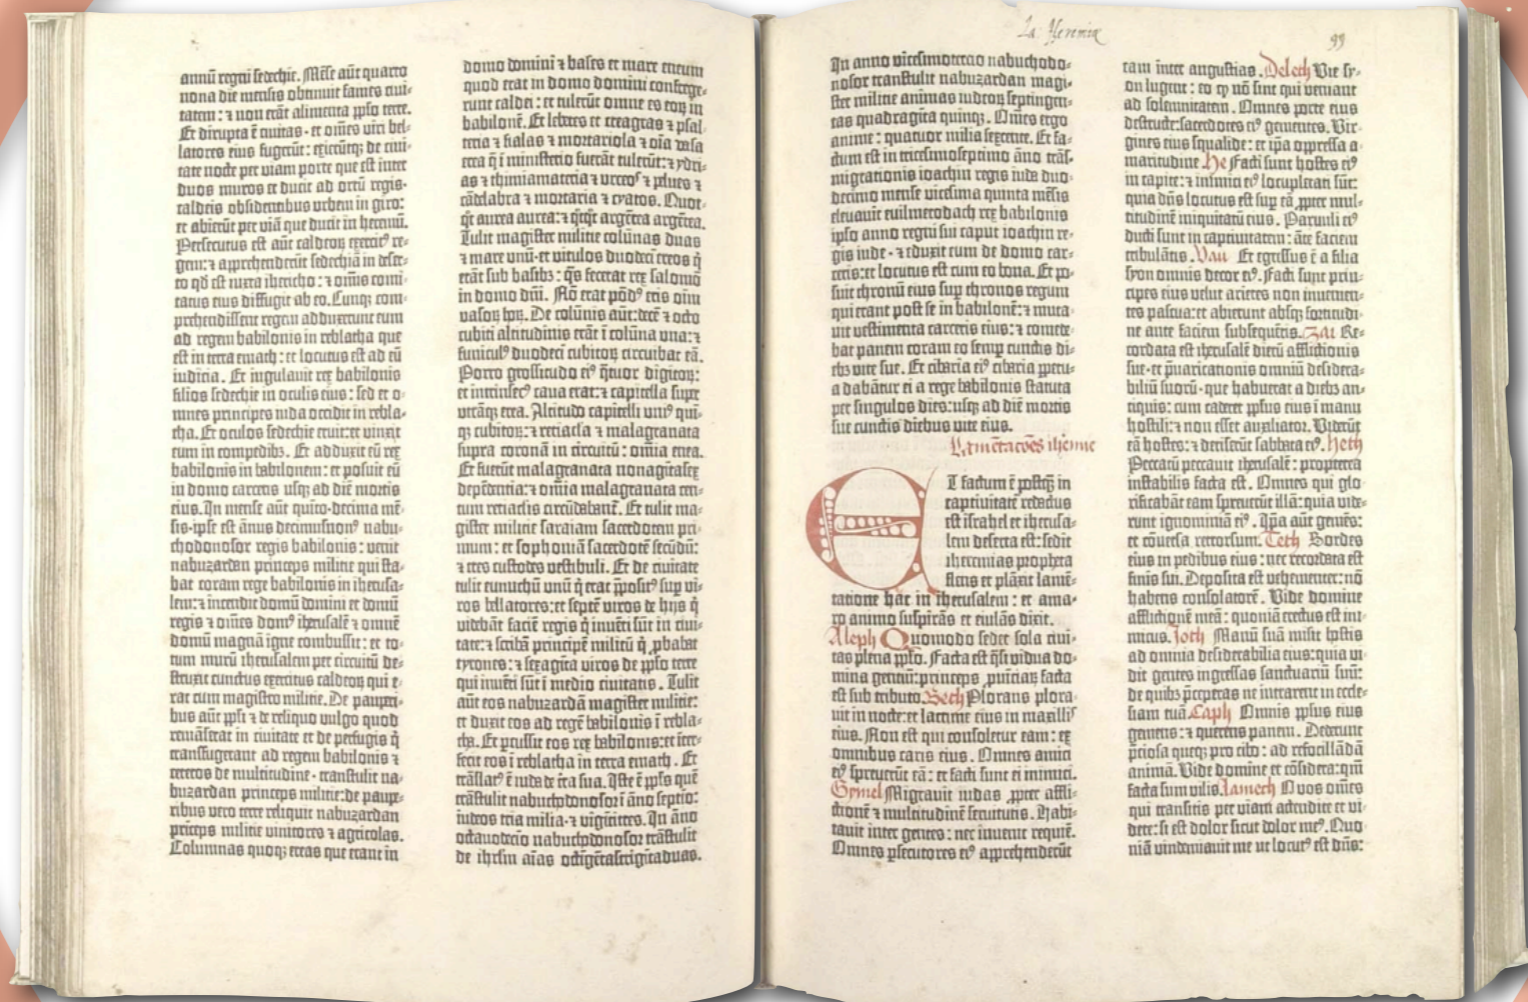 annū regni sedechie. Mēse aūt quarto
nona die mensis obtinuit fames civi-
tatem: ⁊ non erāt alimenta pplo terre.
Et dirupta ē civitas · et omēs viri bel-
latores eius fugerūt: exierūtqꝫ de civi-
tate nocte per viam porte que est inter
duos muros et ducit ad ortū regis·
caldeis obsidentibus urbem in giro:
et abierūt per viā que ducit in heremū.
Persecutus est aūt caldeoꝝ exercitꝰ re-
gem: ⁊ apprehenderūt sedechiā in deser-
to qd̄ est iuxta ihericho: ⁊ omnis comi-
tatus eius diffugit ab eo. Cunqꝫ com-
prehendissent regem adduxerunt eum
ad regem babilonis in reblatha que
est in terra emath: et locutus est ad eū
iudicia. Et iugulavit rex babilonis
filios sedechie in oculis eius: sed et o-
mnes principes iuda occidit in rebla-
tha. Et oculos sedechie eruit: et vinxit
eum in compedibꝫ. Et adduxit eū rex
babilonis in babilonem: et posuit eū
in domo carceris usqꝫ ad diē mortis
eius. In mense aūt quīto · decima mē-
sis · ipse est ānus decimusnonꝰ nabu-
chodonosor regis babilonis: venit
nabuzardan princeps militie qui sta-
bat coram rege babilonis in iherusa-
lem: ⁊ incendit domū domini et domū
regis ⁊ omēs domꝰ iherusalē ⁊ omnē
domū magnā igne combussit: et to-
tum murū iherusalem per circuitū de-
struxit cunctus exercitus caldeoꝝ qui e-
rat cum magistro militie. De pauperi-
bus aūt ppli ⁊ de reliquo vulgo quod
remāserat in civitate et de perfugis q̄
transfugerant ad regem babilonis ⁊
ceteros de multitudine · transtulit na-
buzardan princeps militie: de paupe-
ribus vero terre reliquit nabuzardan
prīceps militie vinitores ⁊ agricolas.
Columnas quoqꝫ ereas que erant in
domo domini ⁊ bases et mare eneum
quod erat in domo domini confrege-
runt caldei: et tulerūt omne es eoꝝ in
babilonē. Et lebetes et creagras ⁊ psal-
teria ⁊ fialas ⁊ mortariola ⁊ oīa vasa
erea q̄ ī ministerio fuerāt tulerūt: ⁊ ydri-
as ⁊ thimiamateria ⁊ urceos ⁊ pelues ⁊
cādelabra ⁊ mortaria ⁊ cyatos. Quot-
qt̄ aurea aurea: ⁊ q̄tqt̄ argētea argētea.
Tulit magister militie colūnas duas
⁊ mare unū · et vitulos duodeci ereos q̄
erāt sub basibꝫ: q̄s fecerat rex salomō
in domo dn̄i. Nō erat pōdꝰ eris oīm
vasoꝝ hoꝝ. De colūnis aūt: decē ⁊ octo
cubiti altitudinis erāt ī colūna una: ⁊
funiculꝰ duodeci cubitoꝝ circuibat eā.
Porro grossitudo eiꝰ q̄tuor digitoꝝ:
et intrinsecꝰ cava erat: ⁊ capitella super
utrāqꝫ erea. Altitudo capitelli uniꝰ qui-
qꝫ cubitoꝝ: ⁊ retiacula ⁊ malagranata
supra coronā in circuitu: omia enea.
Et fuerūt malagranata nonagītasex
depēdentia: ⁊ omīa malagranata cen-
tum retiaculis circūdabant̄. Et tulit ma-
gister militie saraiam sacerdotem pri-
mum: et sophoniā sacerdotē secūdū:
⁊ tres custodes vestibuli. Et de civitate
tulit eunuchū unū q̄ erat ppositꝰ sup vi-
ros bellatores: et septē viros de hijs q̄
videbāt faciē regis q̄ inuēti sūt in civi-
tate: ⁊ scribā principē militū q̄ pbabat
tyrones: ⁊ sexagīta viros de pplo terre
qui inuēti sūt ī medio civitatis. Tulit
aūt eos nabuzardā magister militie:
et duxit eos ad regē babilonis ī rebla-
tha. Et pcussit eos rex babilonis: et īter-
fecit eos ī reblatha in terra emath. Et
trāslatꝰ ē iuda de tr̄a sua. Iste ē pplus quē
trāstulit nabuchodonosor ī āno septīo:
iudeos tria milia · ⁊ vigītitres. In āno
octavodecīo nabuchodonosor trāstulit
de ihrl̄m aīas octigētas trigītaduas.
La: Jeremiæ
99
In anno vicesimotercio nabuchodo-
nosor transtulit nabuzardan magi-
ster militie animas iudeoꝝ septingen-
tas quadragīta quinqꝫ. Omēs ergo
anime: quatuor milia sexcente. Et fa-
ctum est in tricesimoseptimo āno trās-
migrationis ioachin regis iude duo-
decimo mense vicesima quinta mēsis
eleuauit euilmerodach rex babilonis
ipso anno regni sui caput ioachin re-
gis iude · ⁊ eduxit eum de domo car-
ceris: et locutus est cum eo bona. Et po-
suit thronū eius sup thronos regum
qui erant post se in babilonē: ⁊ muta-
uit vestimenta carceris eius: ⁊ comede-
bat panem coram eo semp cunctis di-
ebꝫ vite sue. Et cibaria eiꝰ cibaria ppetu-
a dabātur ei a rege babilonis statuta
per singulos dies: usqꝫ ad diē mortis
sue cunctis diebus vite eius.
Lamētacōes iheremie
ET factum ē postqꝫ in
captiuitatē redactus
est israhel et iherusa-
lem deserta est: sedit
iheremias propheta
flens et plāxit lamē-
tatione hac in iherusalem: et ama-
ro animo suspirās et eiulās dixit.
Aleph Quomodo sedet sola civi-
tas plena pplo. Facta est q̄si vidua do-
mina gentiū: princeps puīciaꝝ facta
est sub tributo. Beth Plorans plora-
uit in nocte: et lacrime eius in maxillꝭ
eius. Non est qui consoletur eam: ex
omnibus caris eius. Omnes amici
eiꝰ spreuerūt eā: et facti sunt ei inimici.
Gymel Migrauit iudas ppter affli-
ctionē ⁊ multitudinē seruitutis. Habi-
tauit inter gentes: nec inuenit requiē.
Omnes psecutores eiꝰ apprehenderūt
eam inter angustias. Deleth Vie sy-
on lugent: eo qꝫ nō sint qui veniant
ad solennitatem. Omnes porte eius
destructe: sacerdotes eiꝰ gementes. Vir-
gines eius squalide: et ipa oppressa a-
maritudine. He Facti sunt hostes eiꝰ
in capite: ⁊ inimici eiꝰ locupletati sūt:
quia dn̄s locutus est sup eā ppter mul-
titudinē iniquitatū eius. Paruuli eiꝰ
ducti sunt in captiuitatem: āte faciem
tribulātis. Vau Et egressus ē a filia
syon omnis decor eiꝰ. Facti sunt prin-
cipes eius velut arietes non inuenien-
tes pascua: et abierunt absqꝫ fortitudi-
ne ante faciem subsequētis. Zai Re-
cordata est iherusalē dierū afflictionis
sue · et p̄uaricationis omniū desidera-
biliū suorū · que habuerat a diebꝫ an-
tiquis: cum caderet pplus eius ī manu
hostili: ⁊ non esset auxiliator. Viderūt
eā hostes: ⁊ deriserūt sabbata eiꝰ. Heth
Peccatū peccauit iherusalē: propterea
instabilis facta est. Omnes qui glo-
rificabāt eam spreuerūt illā: quia vide-
runt ignominiā eiꝰ. Ipa aūt gemēs:
et cōuersa retrorsum. Teth Sordes
eius in pedibus eius: nec recordata est
finis sui. Deposita est vehementer: nō
habens consolatorē. Vide domine
afflictionē meā: quoniā erectus est ini-
micus. Joth Manū suā misit hostis
ad omnia desiderabilia eius: quia vi-
dit gentes ingressas sanctuariū suū:
de quibꝫ p̄ceperas ne intrarent in eccle-
siam tuā. Caph Omnis pplus eius
gemens: ⁊ querens panem. Dederunt
p̄ciosa queqꝫ pro cibo: ad refocillādā
animā. Vide domine et cōsidera: qm̄
facta sum vilis. Lamech O vos omēs
qui transitis per viam attendite et vi-
dete: si est dolor sicut dolor meꝰ. Quo-
niā vindemiauit me ut locutꝰ est dn̄s: